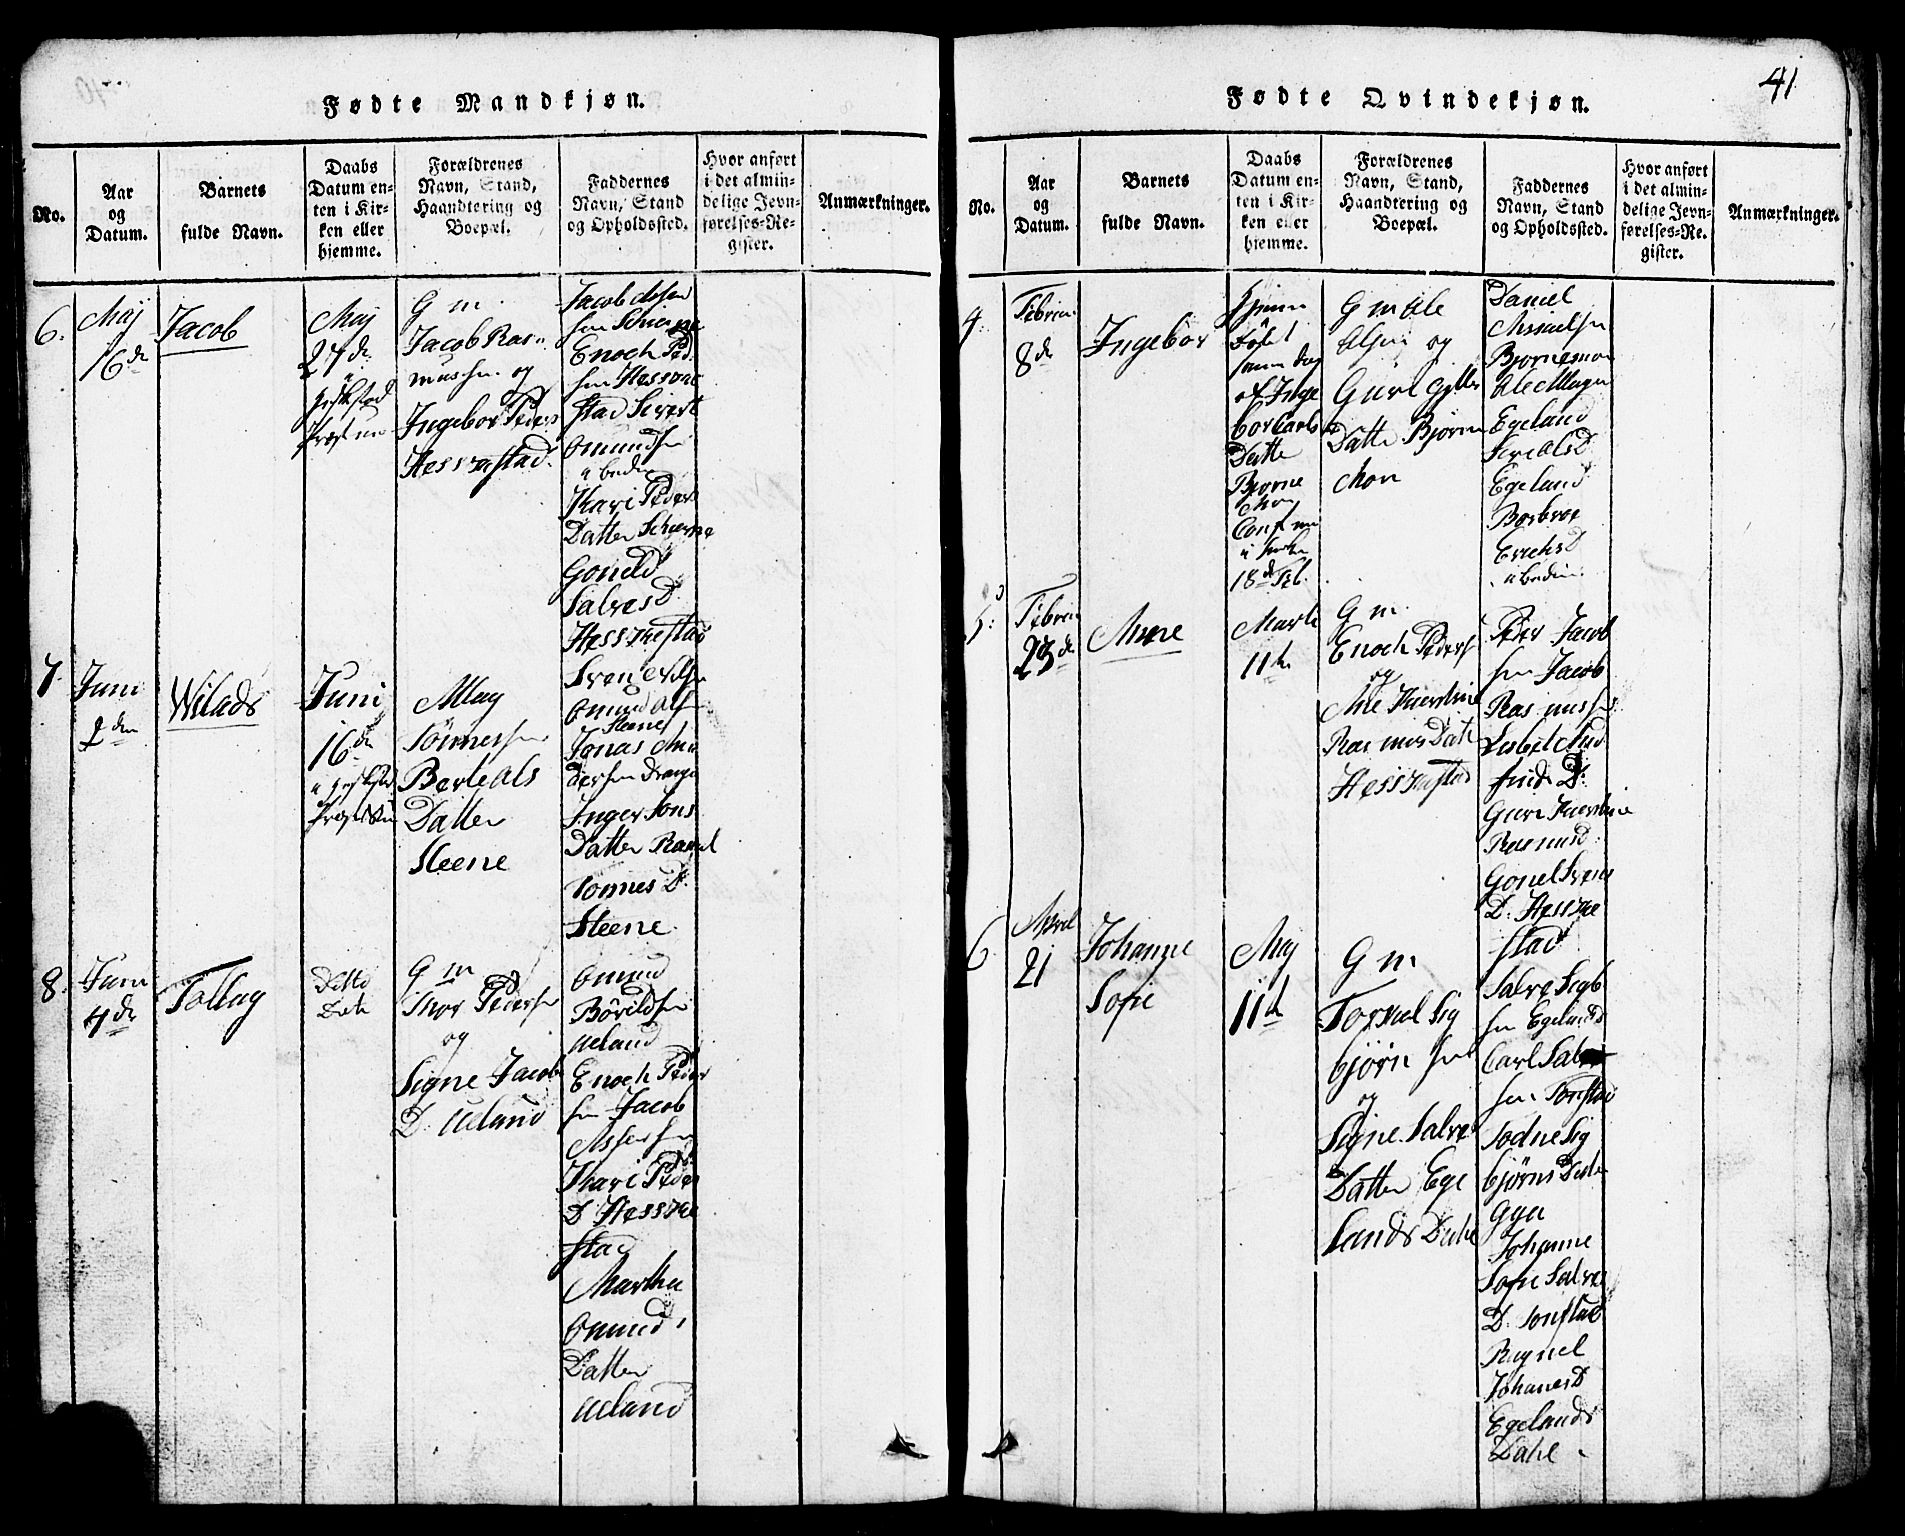 41
Fødte Mandkjøn.
No.
Aar
og
Datum.
Barnets
fulde Navn.
Daabs
Datum en-
ten i Kir-
ken eller
hjemme.
Forældrenes
Navn, Stand,
Haandtering og
Boepæl.
Faddernes
Navn, Stand
og Opholdssted.
Hvor anført
i det almin-
delige Jevn-
førelses-Re-
gister.
Anmærkninger.
6.
Maj
16 de
Jacob
Maj
27 de
G m
Jacob Ras
mussen og
Ingebor Peders
Hessvestad.
Jacob
sen Schierpe
Enoch Ped
sen Hessve
stad Sivert
Omundsen
Kari Peders
Datter Schierpe
Goneld
Salves D
Hesskestad
7
Juni
2 den
Wilads
Juni
16 de
Aslag
Tönnessen
Berte Ols
Datter
Steene
Sven
Omund Ols
Steene
Jonas An
dersen Drange
Inger Jons
Datter
Tonnes D.
Steene
8.
Juni
4 de
Tollag
Ditto
Dito
G m
Thor Pedersen
og
Signe Jacob
D. Ueland
Omund
Börildsen
Ueland
Enoch Peder
sen Jacob
Assersen
Kari Peder
D Hesske
stad
Martha
Omund
Datter
Ueland
Fødte Qvindekjøn.
No.
Aar
og
Datum.
Barnets
fulde Navn.
Daabs
Datum en-
ten i Kir-
ken eller
hjemme.
Forældrenes
Navn, Stand,
Haandtering og
Boepæl.
Faddernes
Navn, Stand
og Opholdssted.
Hvor anført
i det almin-
delige Jevn-
førelses-Re-
gister.
Anmærkninger.
4.
Febru
8 de
Ingebor
hjeme
Döbt
samme dag
af Inge
bor Carls
Datter
Bjorne
Mon
Conf
18 de Feb.
G m Ole
Olsen og
Guri
Datter Bjorne
Mon
Daniel
Bjornemon
Ole
Egeland
Siri Ols D
Egeland
Borbroe
Erichs D
5.
Febru
23 de
Anne
Marti
11 te
G m.
Enoch Peders
og
Ane Kierstine
Rasmus Datter
Hesskestad
Peder Jacob
sen Jacob
Rasmussen
Lisbet
D.
Guri Kierstine
Rasmus D.
Gonel Svens
D. Hesske
stad
6
April
21
Johanne
Sofie
Maj
11 te
G m
Torkel Sig
bjørn sen
og
Signe Salve
Datter Ege
lands Dahl
Salve Sigb
sen Egeland
Carl Salve
sen Tonstad
Todne Sig
bjørns Datter
Gya
Johanne
Sofie Salves
D. Tonstad
Ragnel
Johanes D
Egelands
Dahl